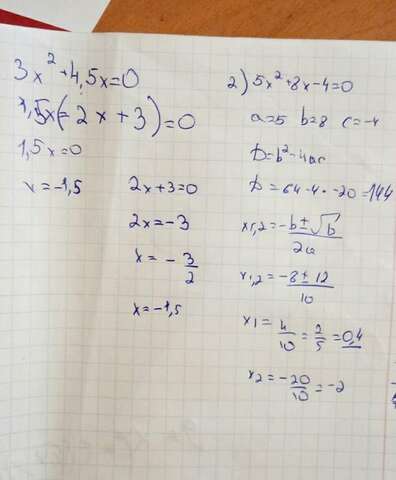 3x² + 4,5x = 0
1,5x(= 2x + 3) = 0
1,5x = 0
x = -1,5
2x + 3 = 0
2x = -3
x = - 3/2
x = -1,5
2) 5x² + 8x - 4 = 0
a = 5 b = 8 c = -4
D = b² - 4ac
D = 64 - 4 · -20 = 144
x1,2 = -b ± √b / 2a
x1,2 = -8 ± 12 / 10
x1 = 4/10 = 2/5 = 0,4
x2 = -20/10 = -2